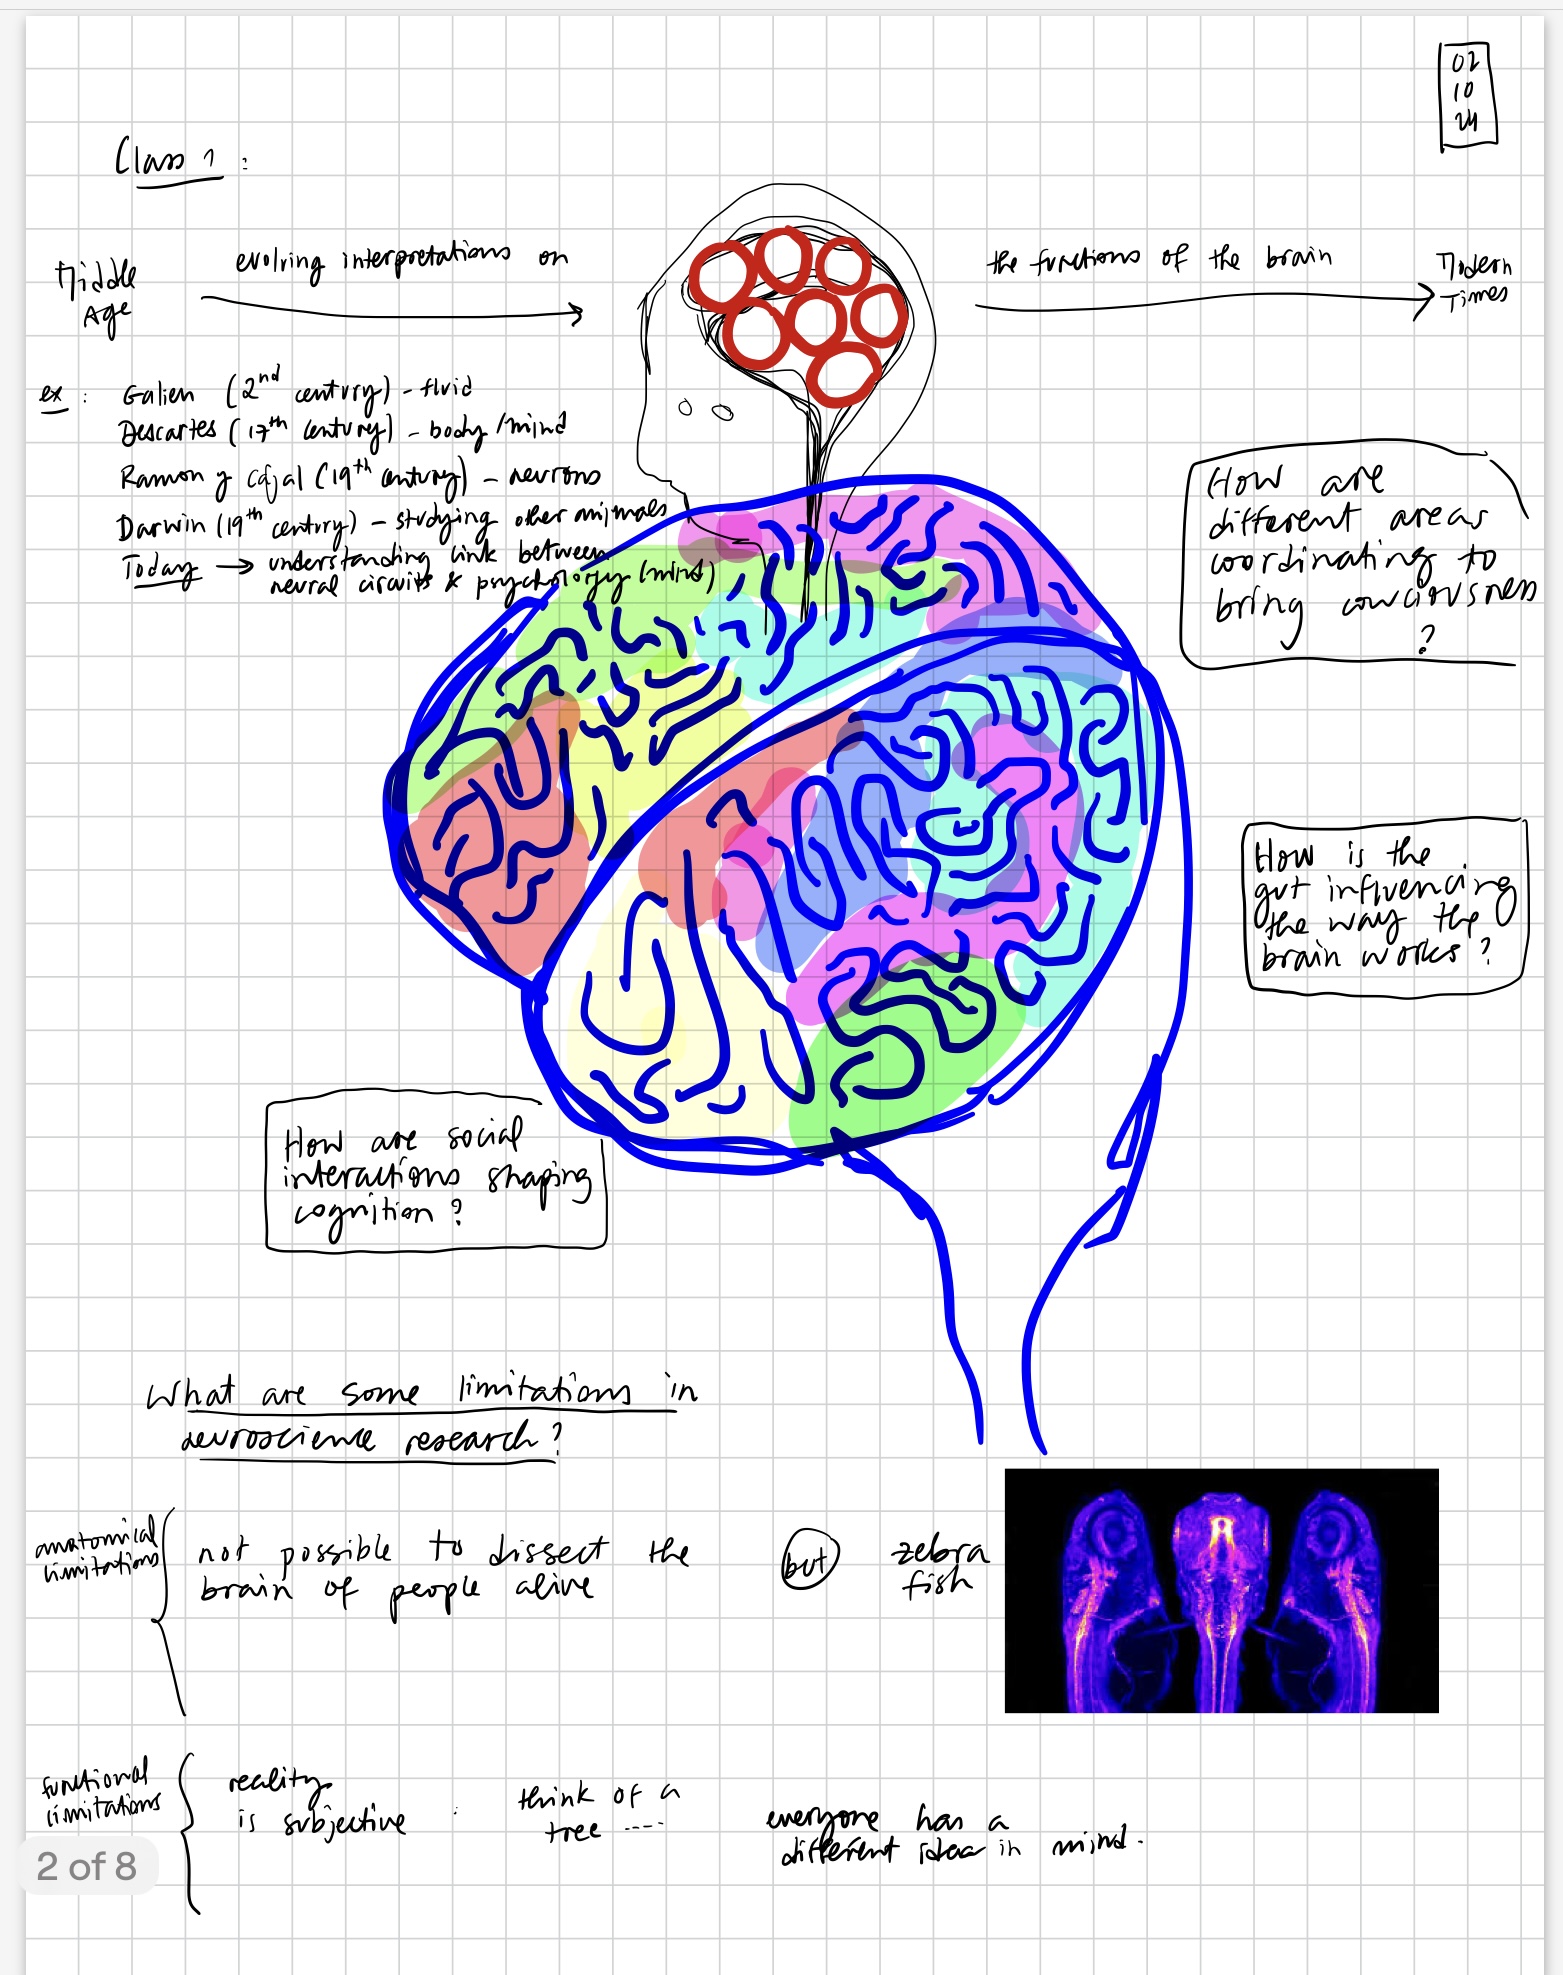 02
10
24
Class 1 :
Middle
Age
evolving interpretations on
the functions of the brain
Modern
Times
ex : Galien (2nd century) - fluid
Descartes (17th century) - body/mind
Ramon y Cajal (19th century) - neurons
Darwin (19th century) - studying other animals
Today → understanding link between
neural circuits & psychology (mind)
How are
different areas
coordinating to
bring conciousness
?
How is the
gut influencing
the way the
brain works?
How are social
interactions shaping
cognition?
What are some limitations in
neuroscience research?
anatomical
limitations
not possible to dissect the
brain of people alive
but
zebra
fish
functional
limitations
reality
is subjective :
think of a
tree ----
everyone has a
different idea in mind.
2 of 8